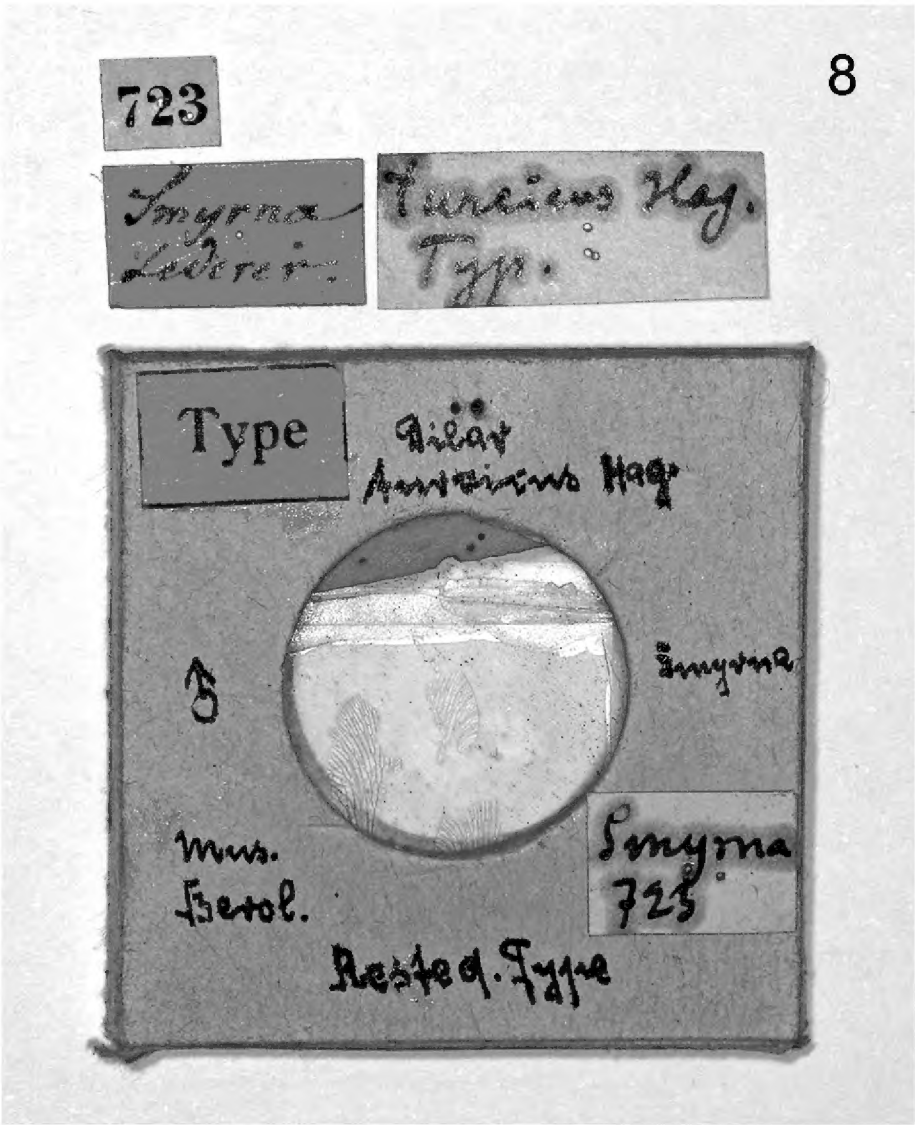 8
723
Smyrna
Lederer.
Turcicus Hag.
Typ.
Type
Dilar
turcicus Hag.
♂
Smyrna
Mus.
Berol.
Smyrna
723
Reste d. Type